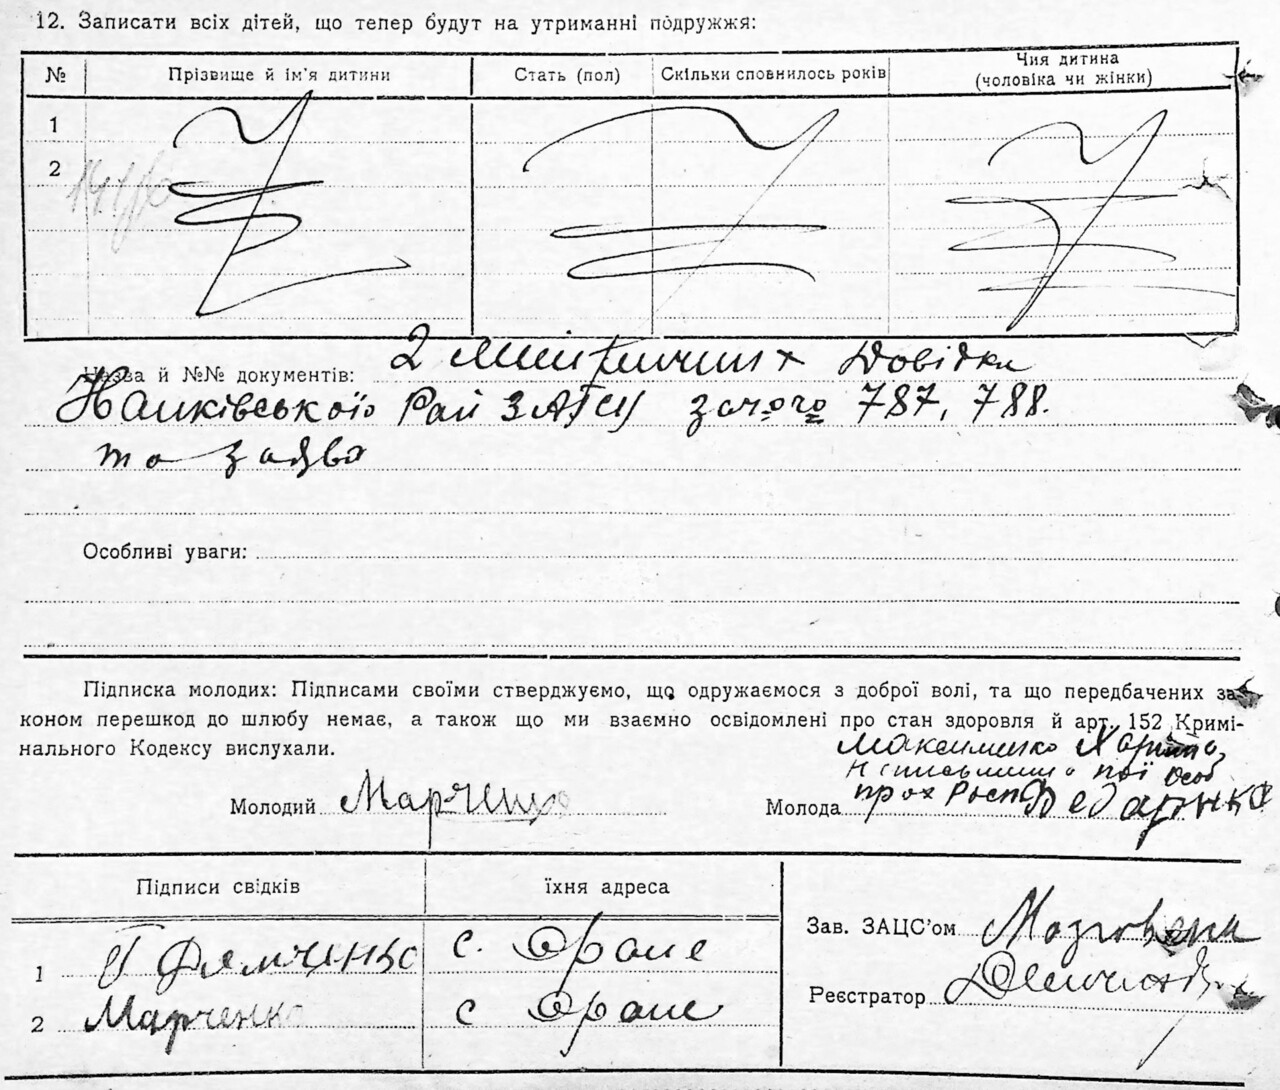 12. Записати всіх дітей, що тепер будут на утриманні подружжя:
№ Прізвище й ім'я дитини Стать (пол) Скільки сповнилось років Чия дитина (чоловіка чи жінки)
1
2
Назва й №№ документів: 2 Довідки
Рай ЗАГСу 787, 788.
та заява
Особливі уваги:
Підписка молодих: Підписами своїми стверджуємо, що одружаємося з доброї волі, та що передбачених за-
коном перешкод до шлюбу немає, а також що ми взаємно освідомлені про стан здоровля й арт. 152 Кримі-
нального Кодексу вислухали.
Максименко
Молодий Марченко Молода
Підписи свідків їхня адреса
Зав. ЗАЦС'ом
1 с. Оране
Реєстратор
2 Марченко с Оране